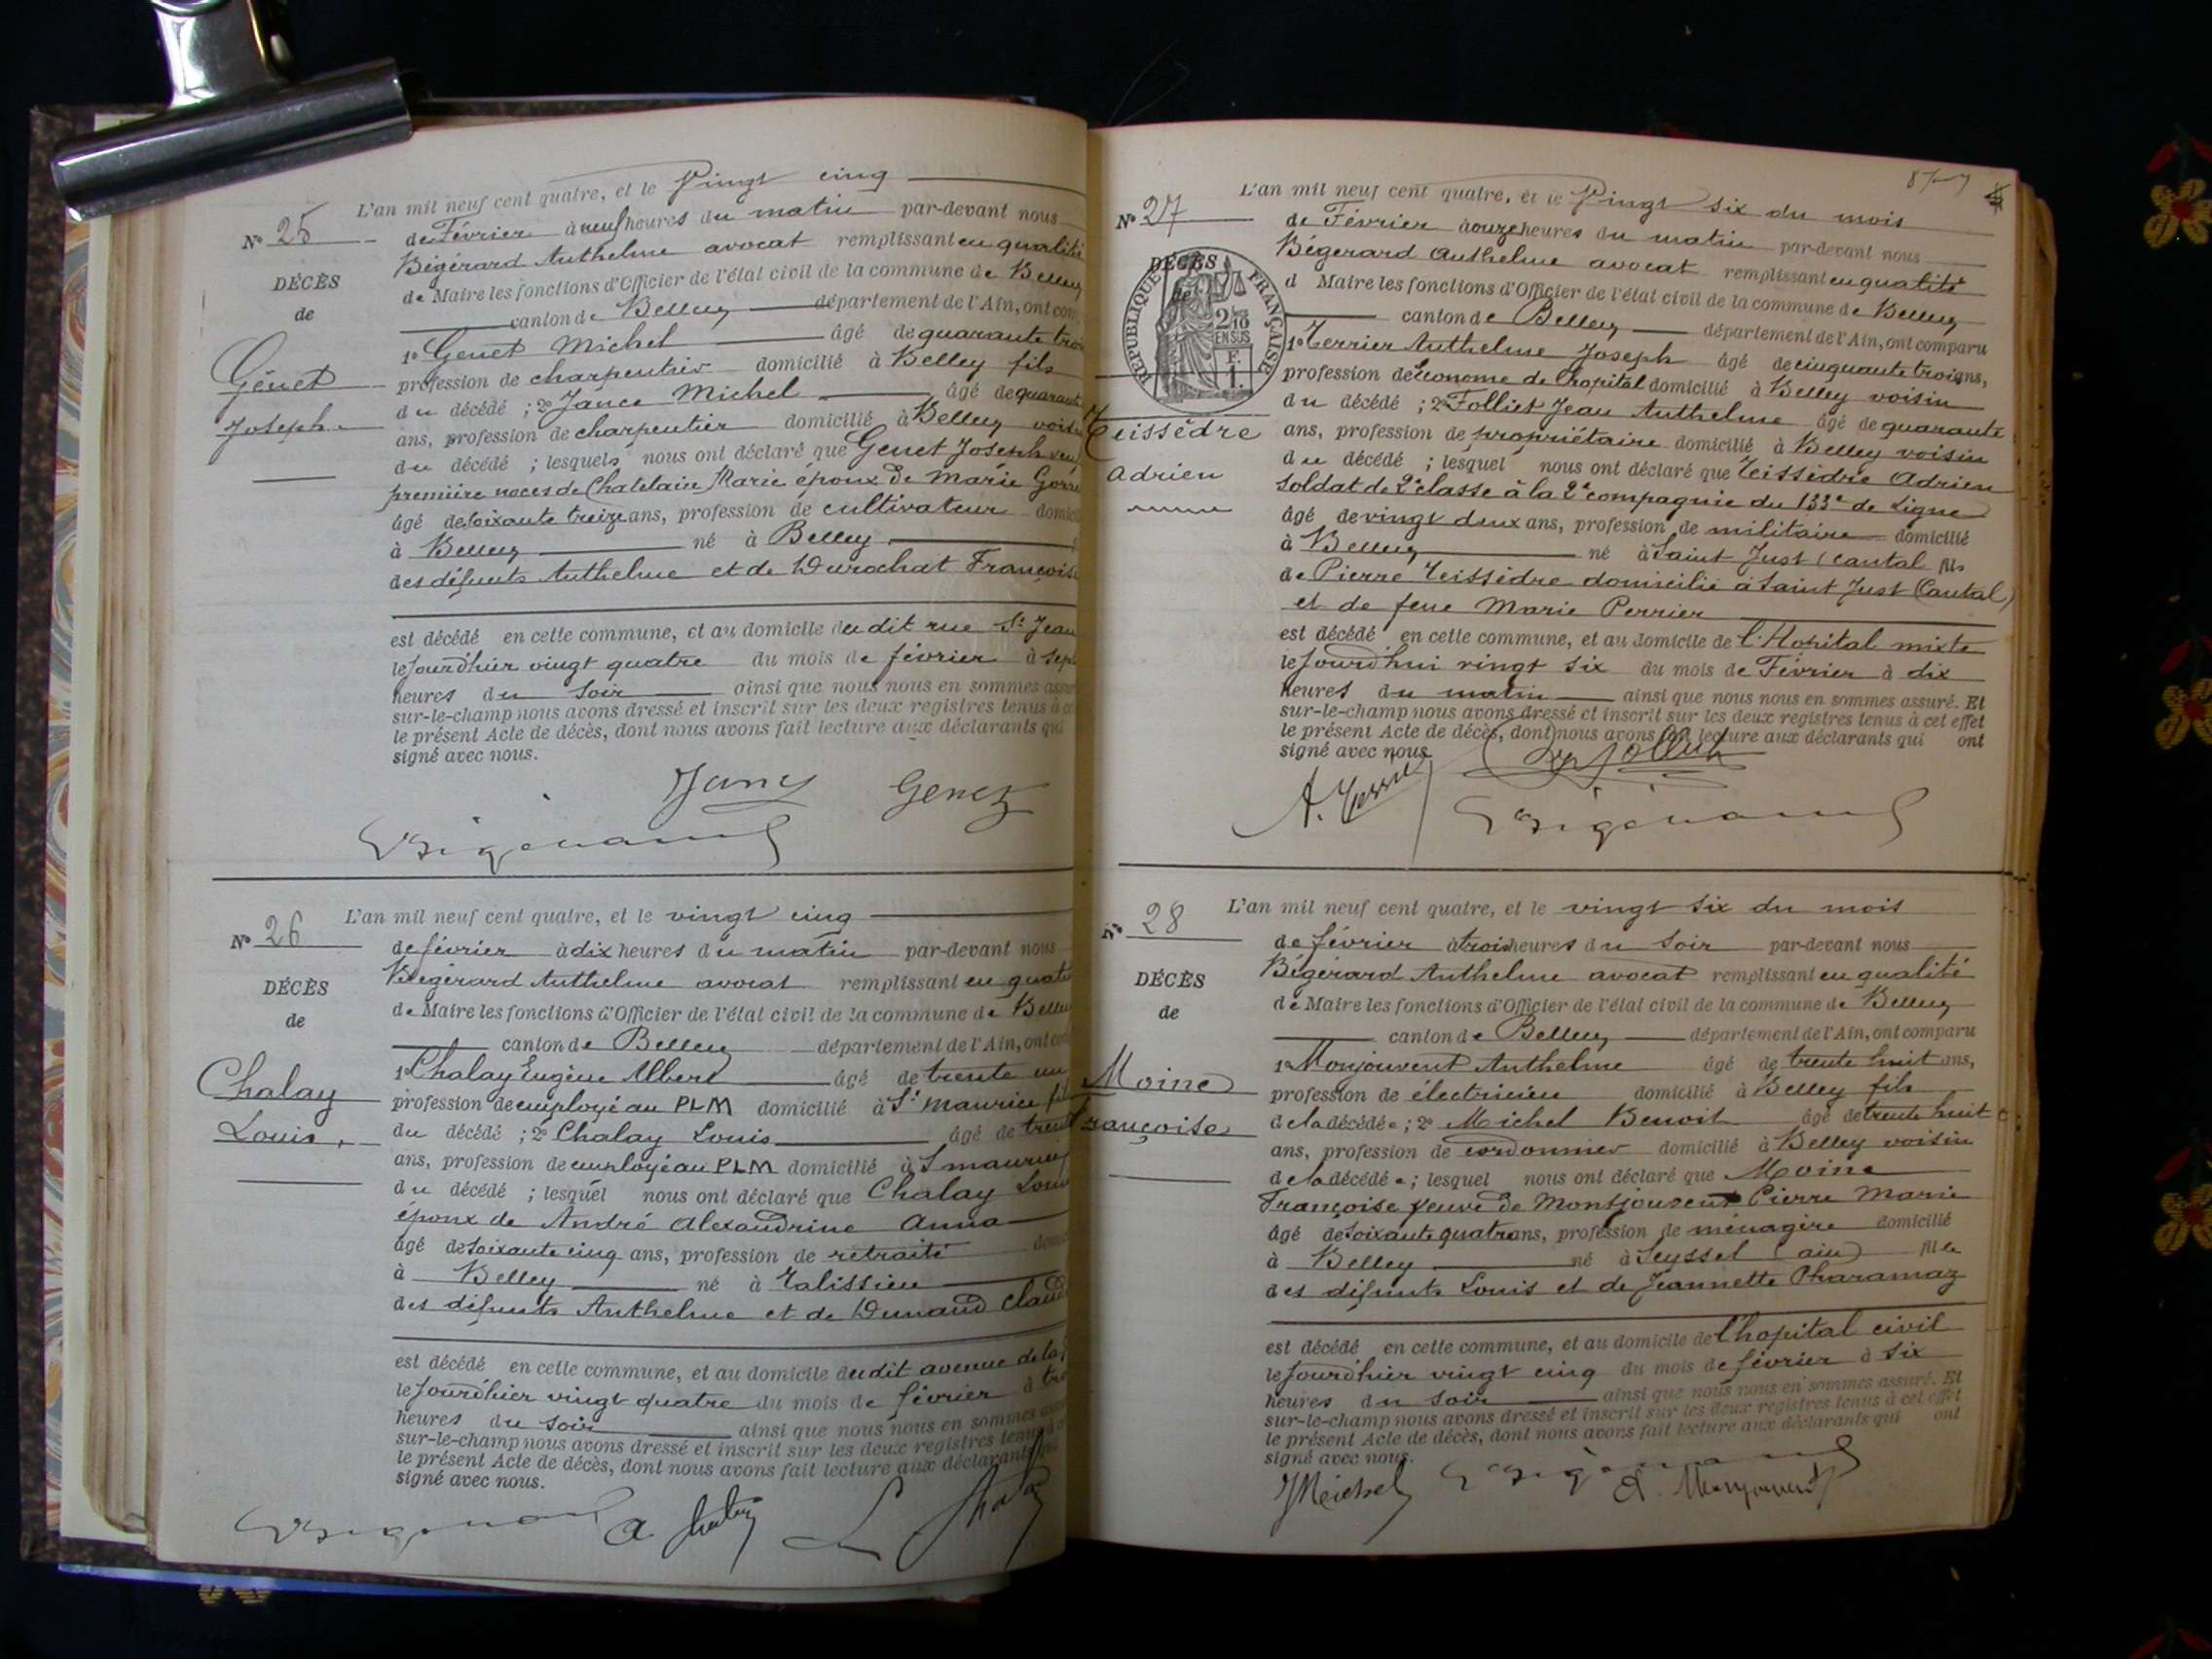 L'an mil neuf cent quatre, et le Vingt cinq
N° 25
de Février à neuf heures du matin par-devant nous
Bégérard Anthelme avocat remplissant en qualité
DÉCÈS
de Maire les fonctions d'Officier de l'état civil de la commune de Belley
de
canton de Belley département de l'Ain, ont com
1° Genet Michel âgé de quarante trois
Génet
profession de charpentier domicilié à Belley fils
du décédé ; 2° Jance Michel âgé de quarante
Joseph
ans, profession de charpentier domicilié à Belley voisin
du décédé ; lesquels nous ont déclaré que Genet Joseph
première noces de Chatelain Marie époux de Marie
âgé de soixante treize ans, profession de cultivateur domicil
à Belley né à Belley
des défunts Anthelme et de Durochat Françoise
est décédé en cette commune, et au domicile du dit rue St Jean
le jourd'hier vingt quatre du mois de février à sept
heures du soir ainsi que nous nous en sommes assu
sur-le-champ nous avons dressé et inscrit sur les deux registres tenus à ce
le présent Acte de décès, dont nous avons fait lecture aux déclarants qui
signé avec nous.
Genez
L'an mil neuf cent quatre, et le vingt cinq
N° 26
de février à dix heures du matin par-devant nous
Bégérard Anthelme avocat remplissant en qualit
DÉCÈS
de Maire les fonctions d'Officier de l'état civil de la commune de Belley
de
canton de Belley département de l'Ain, ont com
1° Chalay Eugène Albert âgé de trente un
Chalay
profession de employé au PLM domicilié à St Maurice fil
Louis
du décédé ; 2° Chalay Louis âgé de trent
ans, profession de employé au PLM domicilié à S maurice
du décédé ; lesquel nous ont déclaré que Chalay Louis
époux de André Alexandrine Anna
âgé de soixante cinq ans, profession de retraité domic
à Belley né à Talissieu
des défunts Anthelme et de Dunand Claud
est décédé en cette commune, et au domicile du dit avenue de la
le jourd'hier vingt quatre du mois de février à tro
heures du soir ainsi que nous nous en sommes
sur-le-champ nous avons dressé et inscrit sur les deux registres tenus à
le présent Acte de décès, dont nous avons fait lecture aux déclarants
signé avec nous.
87
L'an mil neuf cent quatre, et le Vingt six du mois
N° 27
de Février à onze heures du matin par-devant nous
Bégerard Anthelme avocat remplissant en qualité
DÉCÈS
d Maire les fonctions d'Officier de l'état civil de la commune de Belley
de
RÉPUBLIQUE FRANÇAISE
2/10
EN SUS
F.
1.
canton de Belley département de l'Ain, ont comparu
1° Terrier Anthelme Joseph âgé de cinquante trois ans,
profession de Econome de l'hopital domicilié à Belley voisin
du décédé ; 2° Folliet Jean Anthelme âgé de quarante
Teissèdre
ans, profession de propriétaire domicilié à Belley voisin
du décédé ; lesquel nous ont déclaré que Teissèdre Adrien
Adrien
Soldat de 2e classe à la 2e compagnie du 133e de Ligne
âgé de vingt deux ans, profession de militaire domicilié
à Belley né à Saint Just (cantal fils
de Pierre Teissèdre domicilié à Saint Just (Cantal)
et de feue Marie Perrier
est décédé en cette commune, et au domicile de l'Hopital mixte
le jourd'hui vingt six du mois de Février à dix
heures du matin ainsi que nous nous en sommes assuré. Et
sur-le-champ nous avons dressé et inscrit sur les deux registres tenus à cet effet
le présent Acte de décès, dont nous avons fait lecture aux déclarants qui ont
signé avec nous
L'an mil neuf cent quatre, et le vingt six du mois
N° 28
de février à trois heures du soir par-devant nous
Bégérard Anthelme avocat remplissant en qualité
DÉCÈS
de Maire les fonctions d'Officier de l'état civil de la commune de Belley
de
canton de Belley département de l'Ain, ont comparu
1° Monjouvent Anthelme âgé de trente huit ans,
Moine
profession de électricien domicilié à Belley fils
Françoise
de la décédée ; 2° Michel Benoit âgé de trente huit
ans, profession de cordonnier domicilié à Belley voisin
de la décédée ; lesquel nous ont déclaré que Moine
Françoise veuve de Montjouvent Pierre Marie
âgé de soixante quatre ans, profession de ménagère domicilié
à Belley né à Seyssel (ain) fille
des défunts Louis et de Jeannette Pharamaz
est décédé en cette commune, et au domicile de l'hopital civil
le jourd'hier vingt cinq du mois de février à six
heures du soir ainsi que nous nous en sommes assuré. Et
sur-le-champ nous avons dressé et inscrit sur les deux registres tenus à cet effet
le présent Acte de décès, dont nous avons fait lecture aux déclarants qui ont
signé avec nous.
Michel